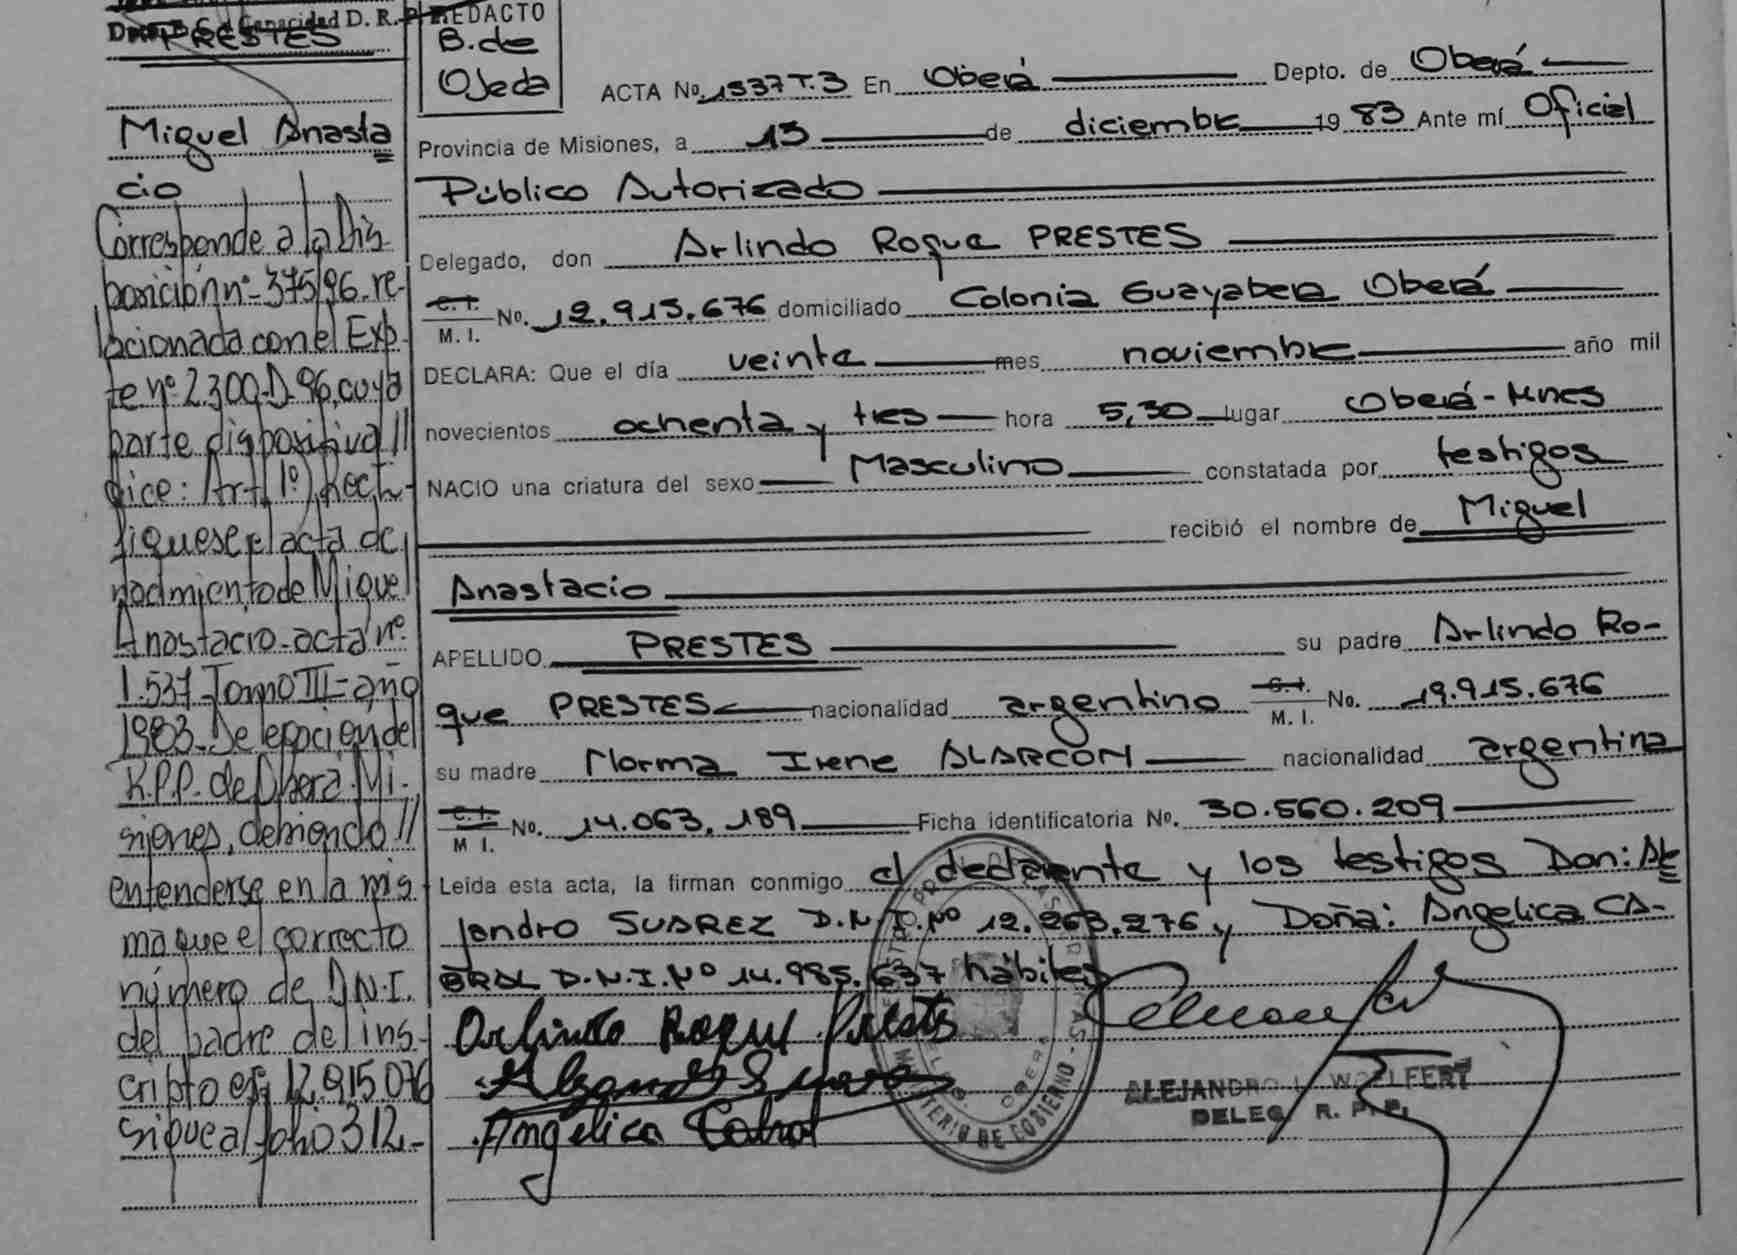 PRESTES
Miguel Anasta
cio
Corresponde a la Dis-
posición nº 375/96. re-
lacionada con el Exp-
te nº 2.300-D-96, cuya
parte dispositiva //
dice: Art 1º) Recti-
fiquese el acta de
nacimiento de Miguel
Anastacio acta nº
1.537 Tomo III - año
1983. Delegacion del
R.P.P. de Oberá. Mi-
siones, debiendo //
entenderse en la mis
ma que el correcto
número de D.N.I.
del padre del ins-
cripto es:
sigue al folio 312.-
REDACTO
B. de
Ojeda
ACTA No. 1537 T.3 En Oberá Depto. de Oberá
Provincia de Misiones, a 15 de diciembre 19 83 Ante mí Oficial
Público Autorizado
Delegado, don Arlindo Roque PRESTES
C. I.
M. I. No. 12.915.676 domiciliado Colonia Guayabera Oberá
DECLARA: Que el día veinte mes noviembre año mil
novecientos ochenta y tres hora 5,30 lugar Oberá - Mnes
NACIO una criatura del sexo Masculino constatada por testigos
recibió el nombre de Miguel
Anastacio
APELLIDO PRESTES su padre Arlindo Ro-
que PRESTES nacionalidad argentino C. I. M. I. No. 19.915.676
su madre Norma Irene ALARCON nacionalidad argentina
C. I.
M I. No. 14.063.189 Ficha identificatoria No. 30.560.209
Leída esta acta, la firman conmigo el declarante y los testigos Don: Ale
jandro SUAREZ D.N.I.Nº 12.263.276 y Doña: Angelica CA-
BRAL D.N.I.Nº 14.985.637 hábiles
Arlindo Roque Prestes
Angelica Cabral
MINISTERIO DE GOBIERNO
OBERA
ALEJANDRO WOLFERT
DELEG R. P. P.